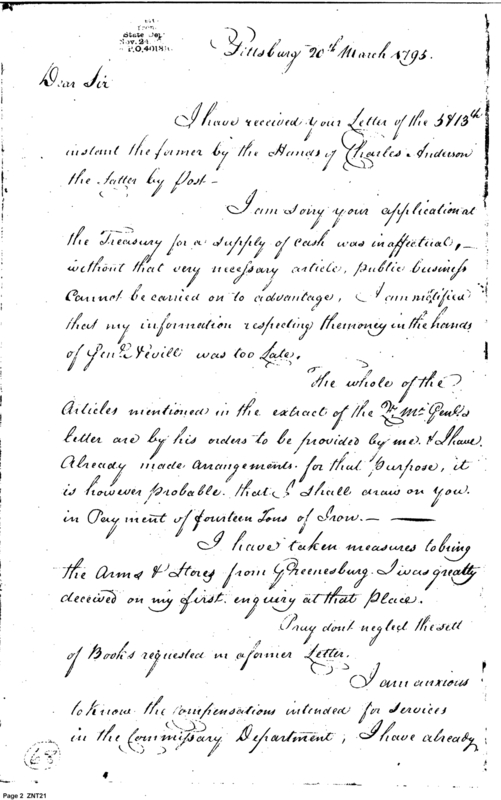 from
State Dep.
Nov. 24.
Pittsburg 20th March 1795.
Dear Sir
I have received your Letter of the 5 & 13th
instant the former by the Hands of Charles Anderson
the Latter by Post –
I am sorry your application at
the Treasury for a supply of cash was inaffectual, –
without that very necessary article, public business
Cannot be carried on to advantage, I am mortified
that my information respecting the money in the hands
of Genl. Nevill was too Late.
The whole of the
Articles mentioned in the extract of the Qr. Mr. Genls.
letter are by his orders to be provided by me. & I have
Already made arrangements for that purpose, it
is however probable that I shall draw on you
in Payment of fourteen Tons of Iron. – —
I have taken measures to bring
the Arms & Stores from Greenesburg. I was greatly
deceived on my first enquiry at that Place.
Pray dont neglect the sett
of Books requested in a former Letter.
I am anxious
to know the compensations intended for services
in the Commissary Department, I have already
Page 2 ZNT21